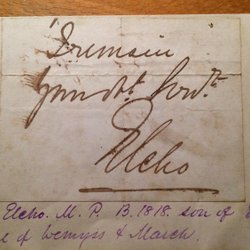 I remain
Your obt. Servt.
Elcho
Elcho. M. P. B. 1818. son of
of Wemyss & March